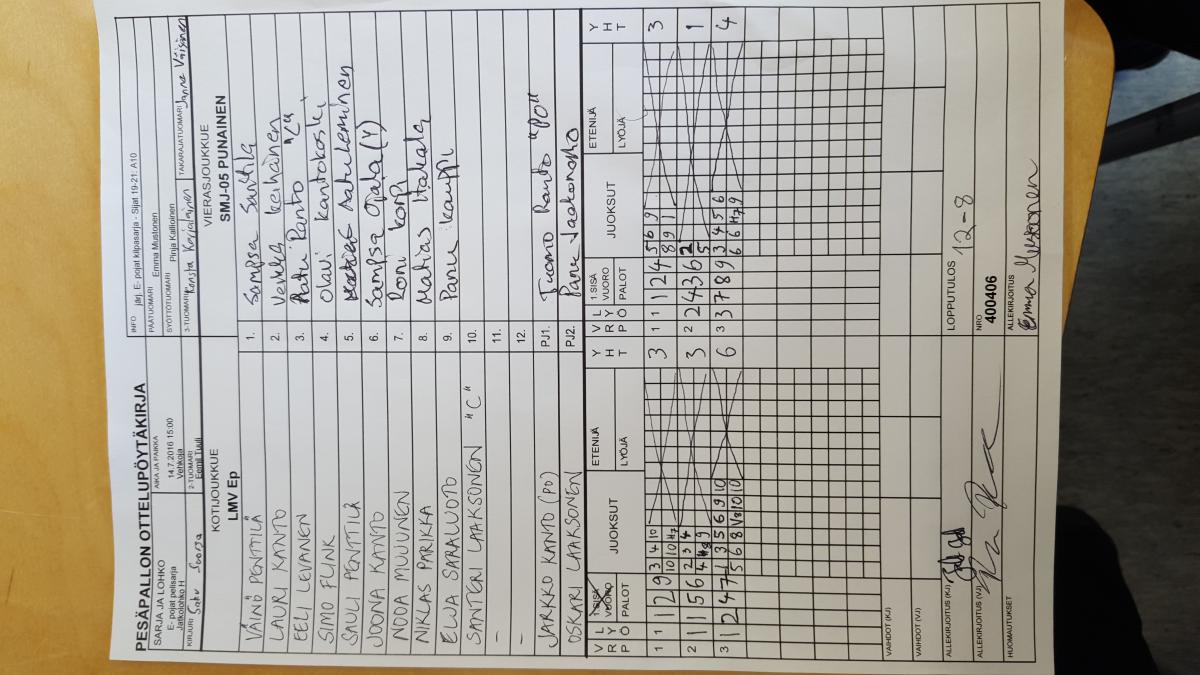 PESÄPALLON OTTELUPÖYTÄKIRJA
SARJA JA LOHKO
E- pojat pelisarja
Jatkolohko H
AIKA JA PAIKKA
14.7.2016 15:00
Vehkoja
KIRJURI Satu Suorsa
2-TUOMARI
Eemil Tuuli
INFO jarj. E- pojat kilpasarja - Sijat 19-21: A10
PÄÄTUOMARI Emma Mustonen
SYÖTTÖTUOMARI Pinja Kallioinen
3-TUOMARI Konsta Karjalainen
TAKARAJATUOMARI Janne Väisänen
KOTIJOUKKUE
LMV Ep
VIERASJOUKKUE
SMJ-05 PUNAINEN
VÄINÖ PENTTILÄ 1. Sampsa Santtila
LAURI KANTO 2. Veikka Keihänen
EELI LEVANEN 3. Patu Ranto "C"
SIMO FLINK 4. Olavi Kantokoski
SAULI PENTTILÄ 5.
JOONA KANTO 6. Sampsa Ojala (Y)
NOOA MUUUNEN 7. Roni Korpi
NIKLAS PARIKKA 8. Matias Itakala
ELJA SARALUOTO 9. Panu Kauppi
SANTERI LAAKSONEN "C" 10.
- 11.
- 12.
JARKKO KANTO (PO) PJ1. Tuomo Ranto "PO"
OSKARI LAAKSONEN PJ2.
V L 1.SISÄ JUOKSUT ETENIJÄ Y V L 1.SISÄ JUOKSUT ETENIJÄ Y
R Y VUORO H R Y VUORO H
P Ö PALOT LYÖJÄ T P Ö PALOT LYÖJÄ T
1 1 1 2 9 3 4 10 3 1 1 1 2 4 5 6 9 3
10 10 H7 8 9 1
2 1 1 5 6 2 3 4 3 2 2 4 3 6 2 1
4 H8 9 5
3 1 2 4 7 1 3 5 6 9 10 6 3 3 7 8 9 3 4 5 6 4
5 6 8 V8 10 10 6 6 H7 9
VAIHDOT (KJ)
VAIHDOT (VJ)
ALLEKIRJOITUS (KJ)
LOPPUTULOS 12-8
ALLEKIRJOITUS (VJ)
NRO
400406
HUOMAUTUKSET
ALLEKIRJOITUS
Emma Mustonen